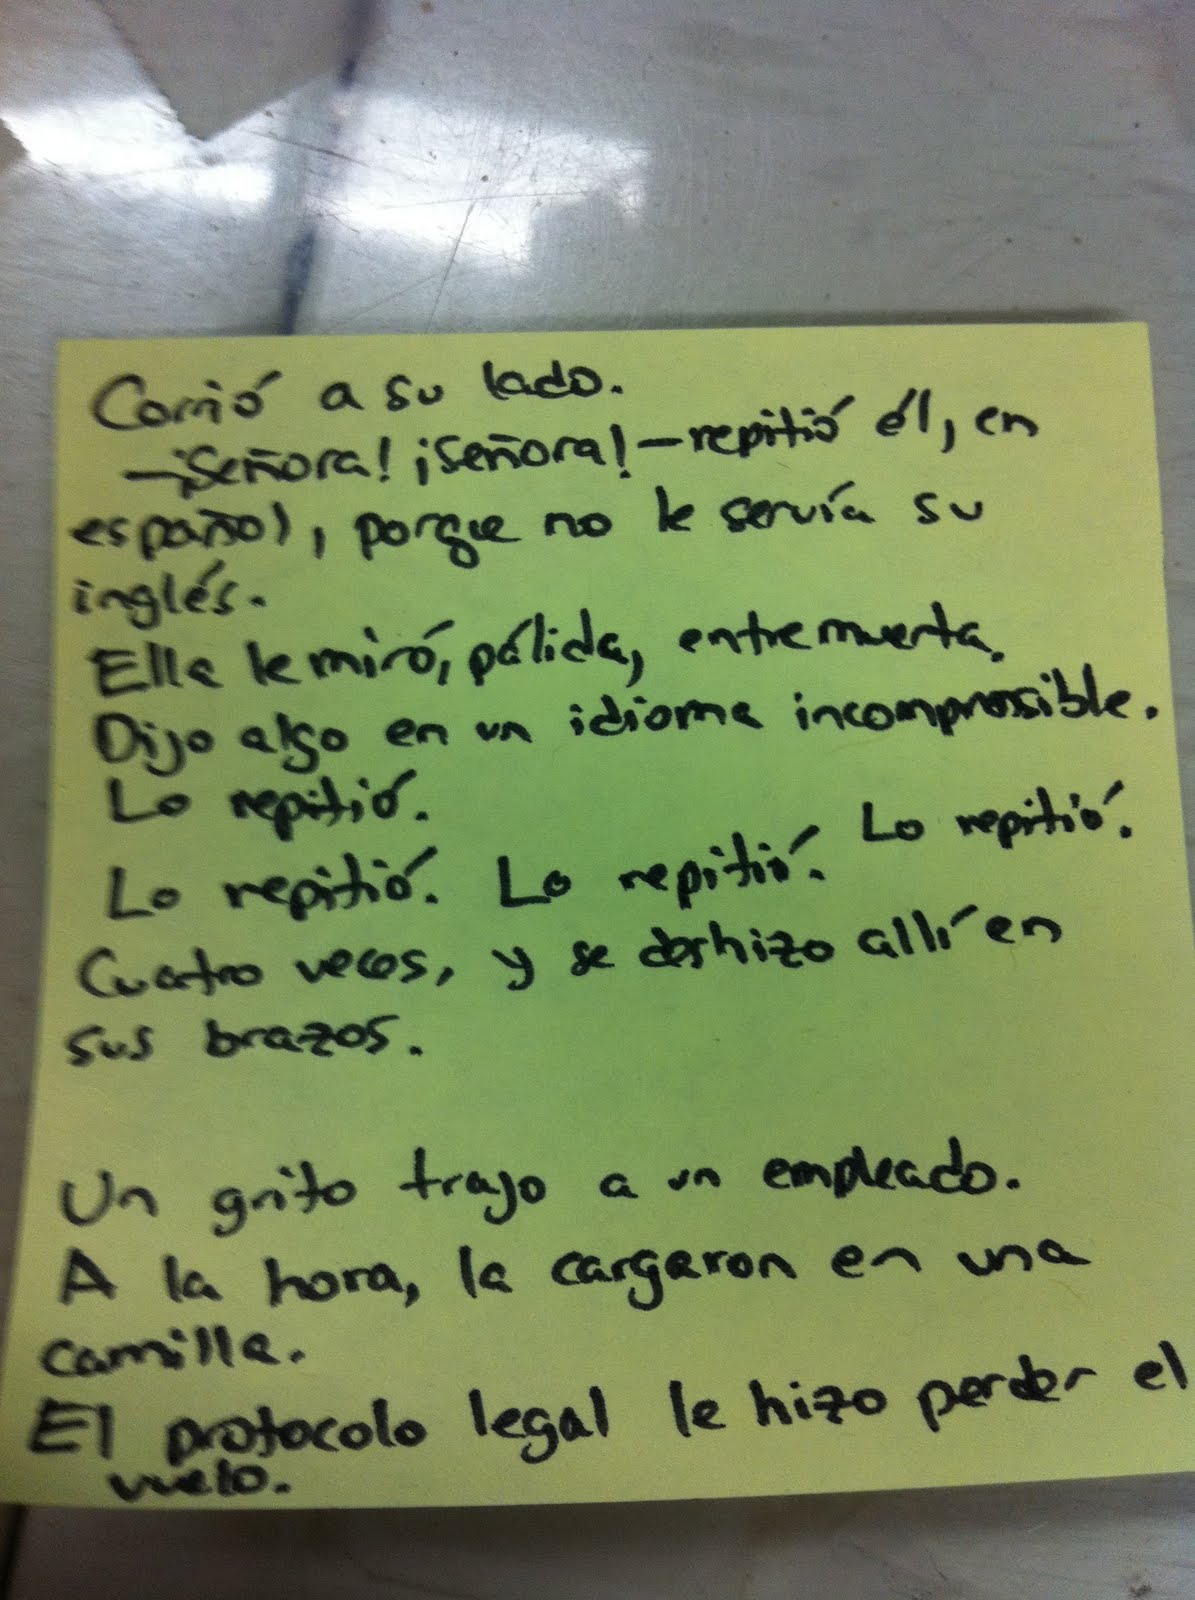 Corrió a su lado.
—¡Señora! ¡Señora! —repitió él, en
español, porque no le servía su
inglés.
Ella le miró, pálida, entremuerta.
Dijo algo en un idioma incomprensible.
Lo repitió.
Lo repitió. Lo repitió. Lo repitió.
Cuatro veces, y se deshizo allí en
sus brazos.
Un grito trajo a un empleado.
A la hora, la cargaron en una
camilla.
El protocolo legal le hizo perder el
vuelo.